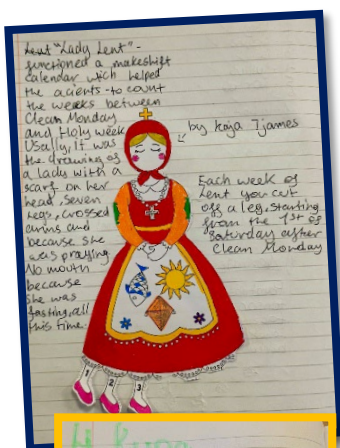 Lent "Lady Lent" -
functioned a makeshift
calendar wich helped
the acients - to count
the weeks between
Clean Monday
and Holy week
Usally, It was
the drawing of
a lady with a
scarf on her
head, seven
legs, crossed
arms and
because she
was praying
No mouth
because
she was
fasting, all
this time.
by Kaja
Each week of
Lent you cut
off a leg, starting
from the 1st of
Saturday after
Clean Monday
1 2 3